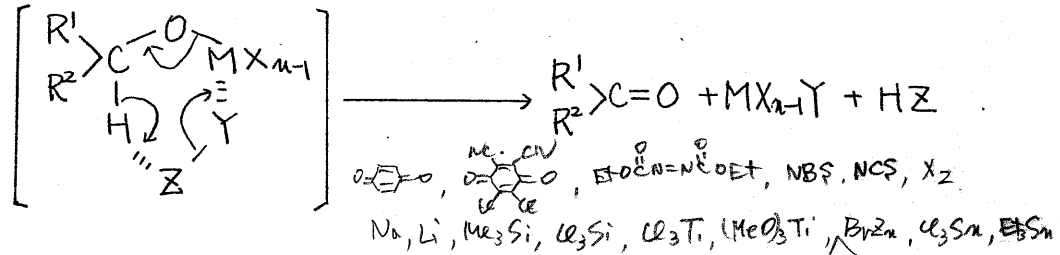 R¹ R² C O MXₙ₋₁ H Y Z
R¹ R² C=O + MXₙ₋₁Y + HZ .
O= =O , NC CN O= =O Cl Cl , EtOCN=NCOEt, NBS, NCS, X₂
O O
Na, Li, Me₃Si, Cl₃Si, Cl₃Ti, (MeO)₃Ti, BrZn, Cl₃Sn, Et₃Sn